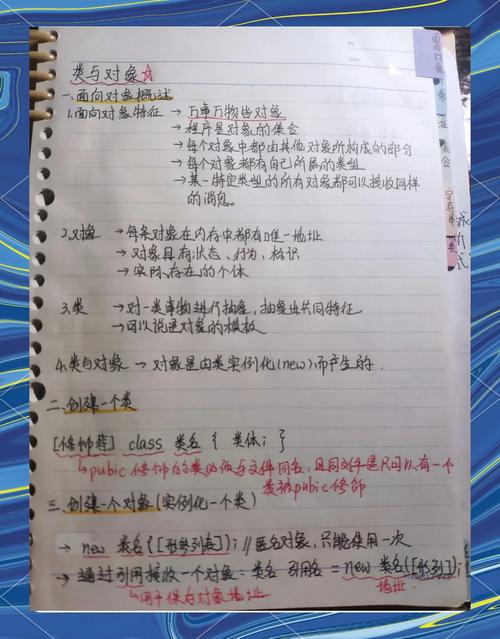 类与对象☆
一、面向对象概述
1.面向对象特征 → 万事万物皆对象
→ 程序是对象的集合
→ 每个对象中都由其他对象所构成的部分
→ 每个对象都有自己所属的类型
→ 某一特定类型的所有对象都可以接收同样
的消息。
2.对象 → 每条对象在内存中都有唯一地址
→ 对象具有状态、行为、标识
→ 实际存在的个体
3.类 → 对一类事物进行抽象,抽象出共同特征
→ 可以说是对象的模板
4.类与对象 → 对象是由类实例化(new)而产生的.
二、创建一个类
[修饰符] class 类名 { 类体; }
↳ pubic 修饰的类必须与文件同名,且同文件里只可以有一个
类被pubic修饰
三、创建一个对象(实例化一个类)
→ new 类名([形参列表]); // 匿名对象,只能使用一次
→ 通过引用接收一个对象:类名 引用名 = new 类名([形列]);
↳ 用于保存对象地址 地址
面向对象
集合
字符串
类